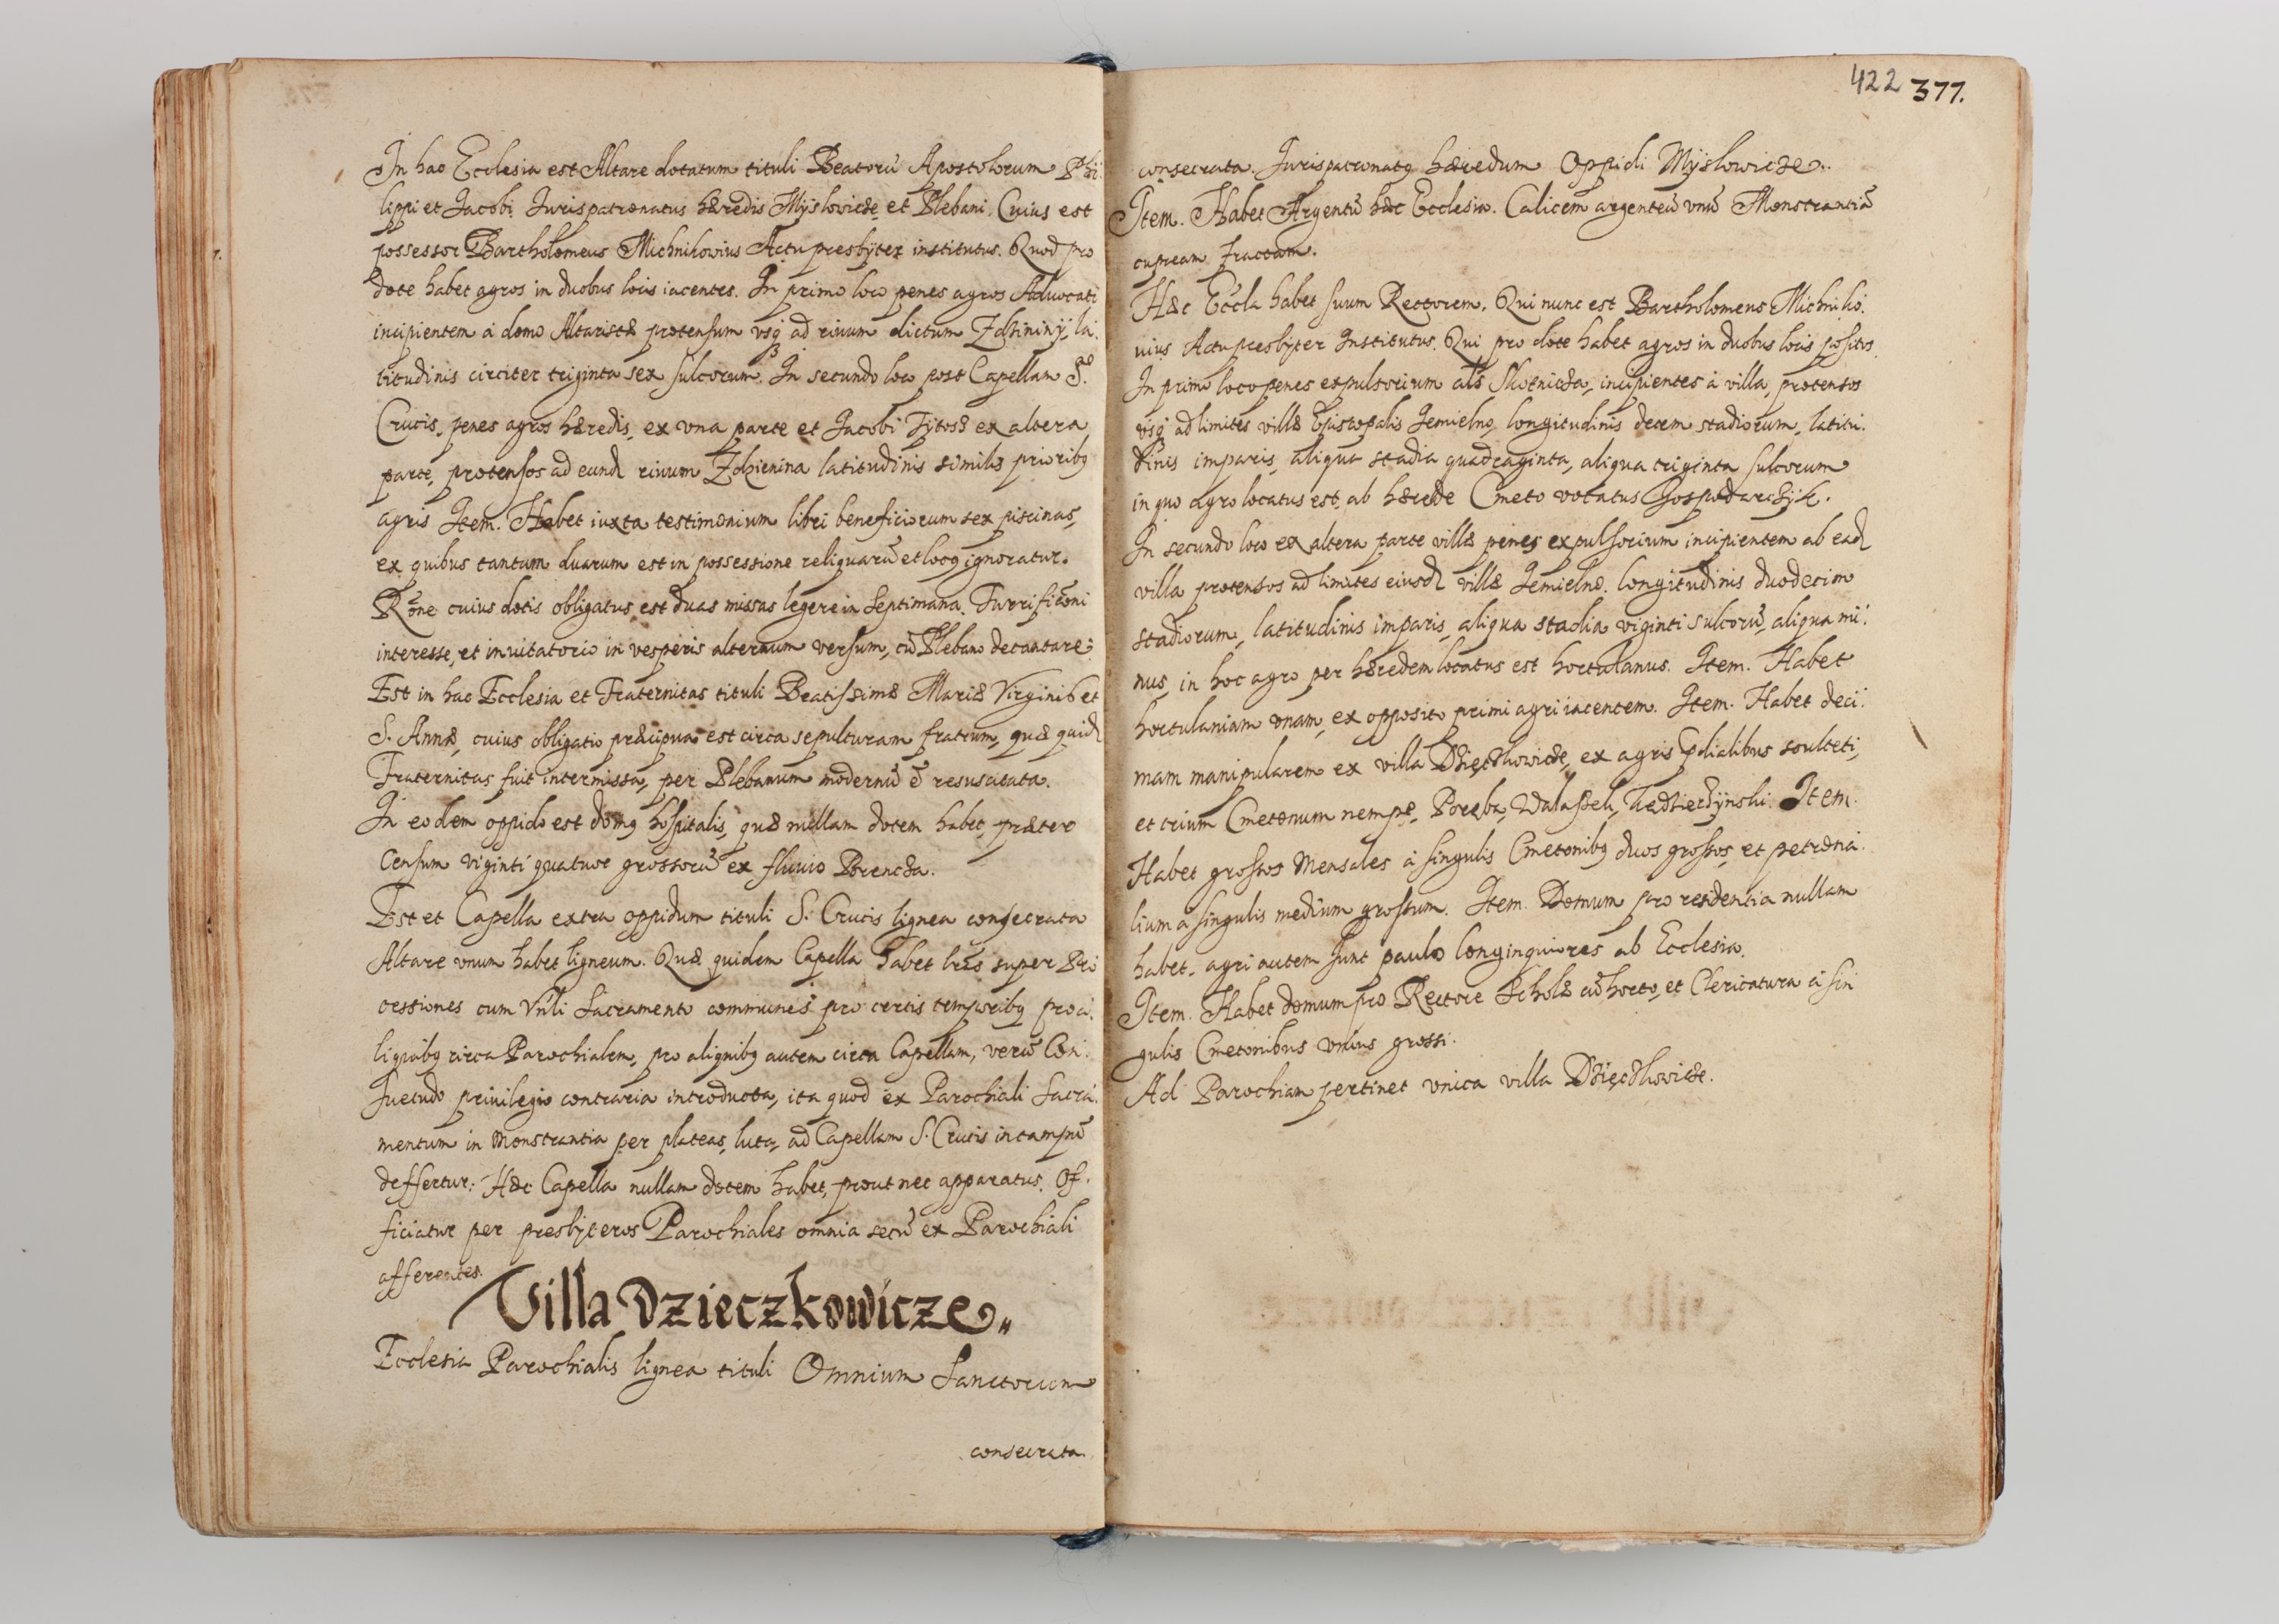 In hac Ecclesia est Altare dotatum tituli Beatorũ Apostolorum Phi
lippi et Jacobi. Jurispatronatus hæredis Mÿslowicze et Plebani. Cuius est
possessor Bartholomeus Michnikowius Actu presbÿter institutus. Quod pro
dote habet agros in duobus locis iacentes. In primo loco penes agros Aduocati
incipientem à domo Altaristæ protensum vsq ad riuum dictum Zdzininÿ, la
titudinis circiter triginta sex sulcorum. In secundo loco post Capellam S.
Crucis, penes agros hæredis, ex vna parte et Jacobi ex altera
parte, protensos ad eund riuum Zdzienina latitudinis similis priorib9
agris Item. Habet iuxta testimonium libri beneficiorum sex piscinas,
ex quibus tantum duarum est in possessione reliquarũ et loc9 ignoratur.
Rõne cuius dotis obligatus est duas missas legere in septimana. Turrificõni
interesse, et inuitatorio in vesperis alternum versum, cũ Plebano decantare.
Est in hac Ecclesia et Fraternitas tituli Beatissimæ Mariæ Virginis et
S. Annæ, cuius obligatio præcipua est circa sepulturam fratrum, quæ quid
Fraternitas fuit intermissa, per Plebanum modernũ ẽ resuscitata.
In eodem oppido est dom9 hospitalis, quæ nullam dotem habet, præter
Censum viginti quatuor grossorũ ex fluuio Brencza.
Est et Capella extra oppidum tituli S. Crucis lignea consecrata
Altare vnum habet ligneum. Quæ quidem Capella habet lrãs super Pro
cessiones cum Vnli Sacramento communes pro certis temporib9 pro a
liquib9 circa Parochialem, pro aliquib9 autem circa Capellam, verũ Con
suetudo priuilegio contraria introducta, ita quod ex Parochiali Sacra
mentum in Monstrantia per plateas, luta, ad Capellam S. Crucis in campũ
deffertur: Hæc Capella nullam dotem habet, prout nec apparatus. Of
ficiatur per presbÿteros Parochiales omnia secũ ex Parochiali
afferentes.
Villa Dzieczkowicze
Ecclesia Parochialis lignea tituli Omnium Sanctorum
consecrata.
422 377.
consecrata. Jurispatronat9 hæredum Oppidi Mÿslowicze.
Item. Habet Argentũ hæc Ecclesia. Calicem argenteũ vnũ Monstrantiã
cupream fractam.
Hæc Eccla habet suum Rectorem. Qui nunc est Bartholomeus Michniko
uius Actu presbÿter Institutus. Qui pro dote habet agros in duobus locis positos.
In primo loco penes expulsorium als Skotnicza, incipientes à villa, protensos
vsq ad limites villæ Episcopalis Jemielno, longitudinis decem stadiorum, latitu
dinis imparis, aliqua stadia quadraginta, aliqua triginta sulcorum
in quo agro locatus est, ab hærede Cmeto vocatus Gospodarczÿk.
In secundo loco ex altera parte villæ penes expulsorium incipientem ab ead
villa protensos ad limites eiusd villæ Jemielno. longitudinis duodecim
stadiorum, latitudinis imparis, aliqua stadia viginti sulcorũ, aliqua mi
nus, in hoc agro per hæredem locatus est hortulanus. Item. Habet
hortulaniam vnam, ex opposito primi agri iacentem. Item. Habet deci
mam manipularem ex villa Dzięczkowicze, ex agris prædialibus sculteti,
et trium Cmetonum nempe, Poręba, Walaszek, Item.
Habet grossos Mensales à singulis Cmetonib9 duos grossos, et petrona
lium à singulis medium grossum. Item. Domum pro residentia nullam
habet, agri autem sunt paulo longinquiores ab Ecclesia.
Item. Habet domum pro Rectore Scholæ cũ horto, et Clericatura à sin
gulis Cmetonibus vnius grossi.
Ad Parochiam pertinet vnica villa Dzięczkowicze.